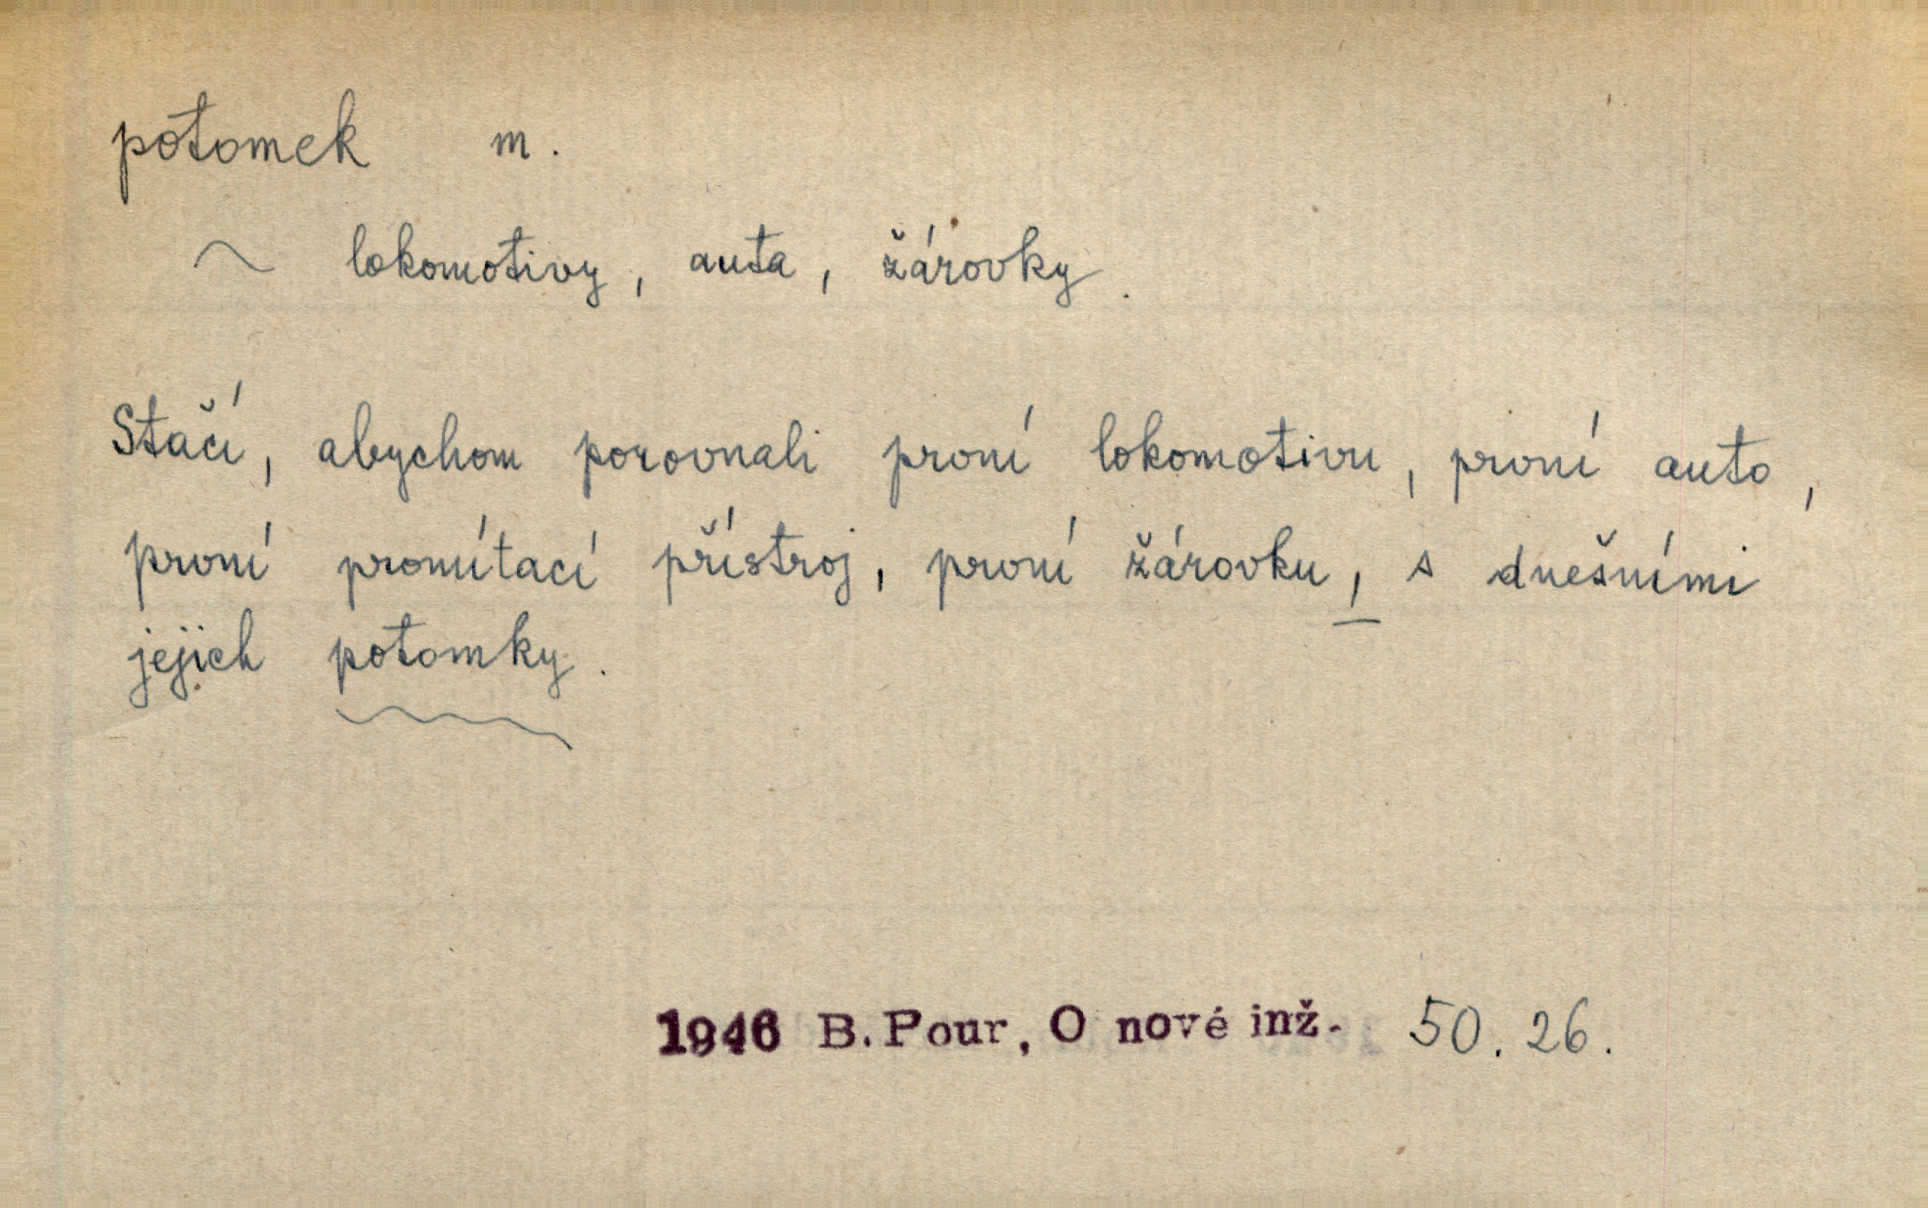 potomek m.
~ lokomotivy, auta, žárovky.
Stačí, abychom porovnali první lokomotivu, první auto,
první promítací přístroj, první žárovku, s dnešními
jejich potomky.
1946 B. Pour, O nové inž. 50. 26.